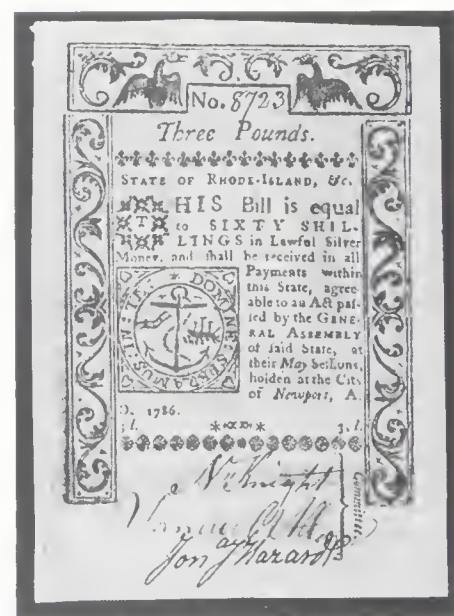 No. 8723
Three Pounds.
STATE OF RHODE-ISLAND, &c.
THIS Bill is equal
to SIXTY SHIL-
LINGS in Lawful Silver
Money, and shall be received in all
Payments within
this State, agree-
able to an Act pas-
sed by the GENE-
RAL ASSEMBLY
of said State, at
their May Session,
holden at the City
of Newport, A.
D. 1786.
3 l. 3 l.
IN TE DOMINE SPERAMUS
Knight
Jon J Hazard
Committee.